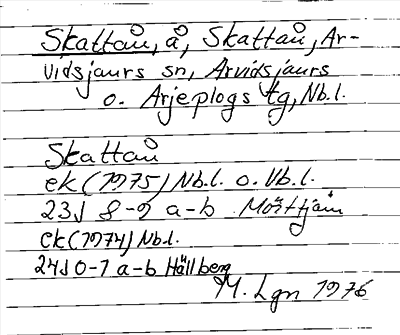 Skattån, å, Skattån, Ar-
vidsjaurs sn, Arvidsjaurs
o. Arjeplogs tg, Nb.l.
Skattån
ek (1975) Nb.l. o. Vb.l.
23J 8-9 a-b Mörttjärn
ek (1974) Nb.l.
24J 0-1 a-b Hällberg
M. Lgn 1976